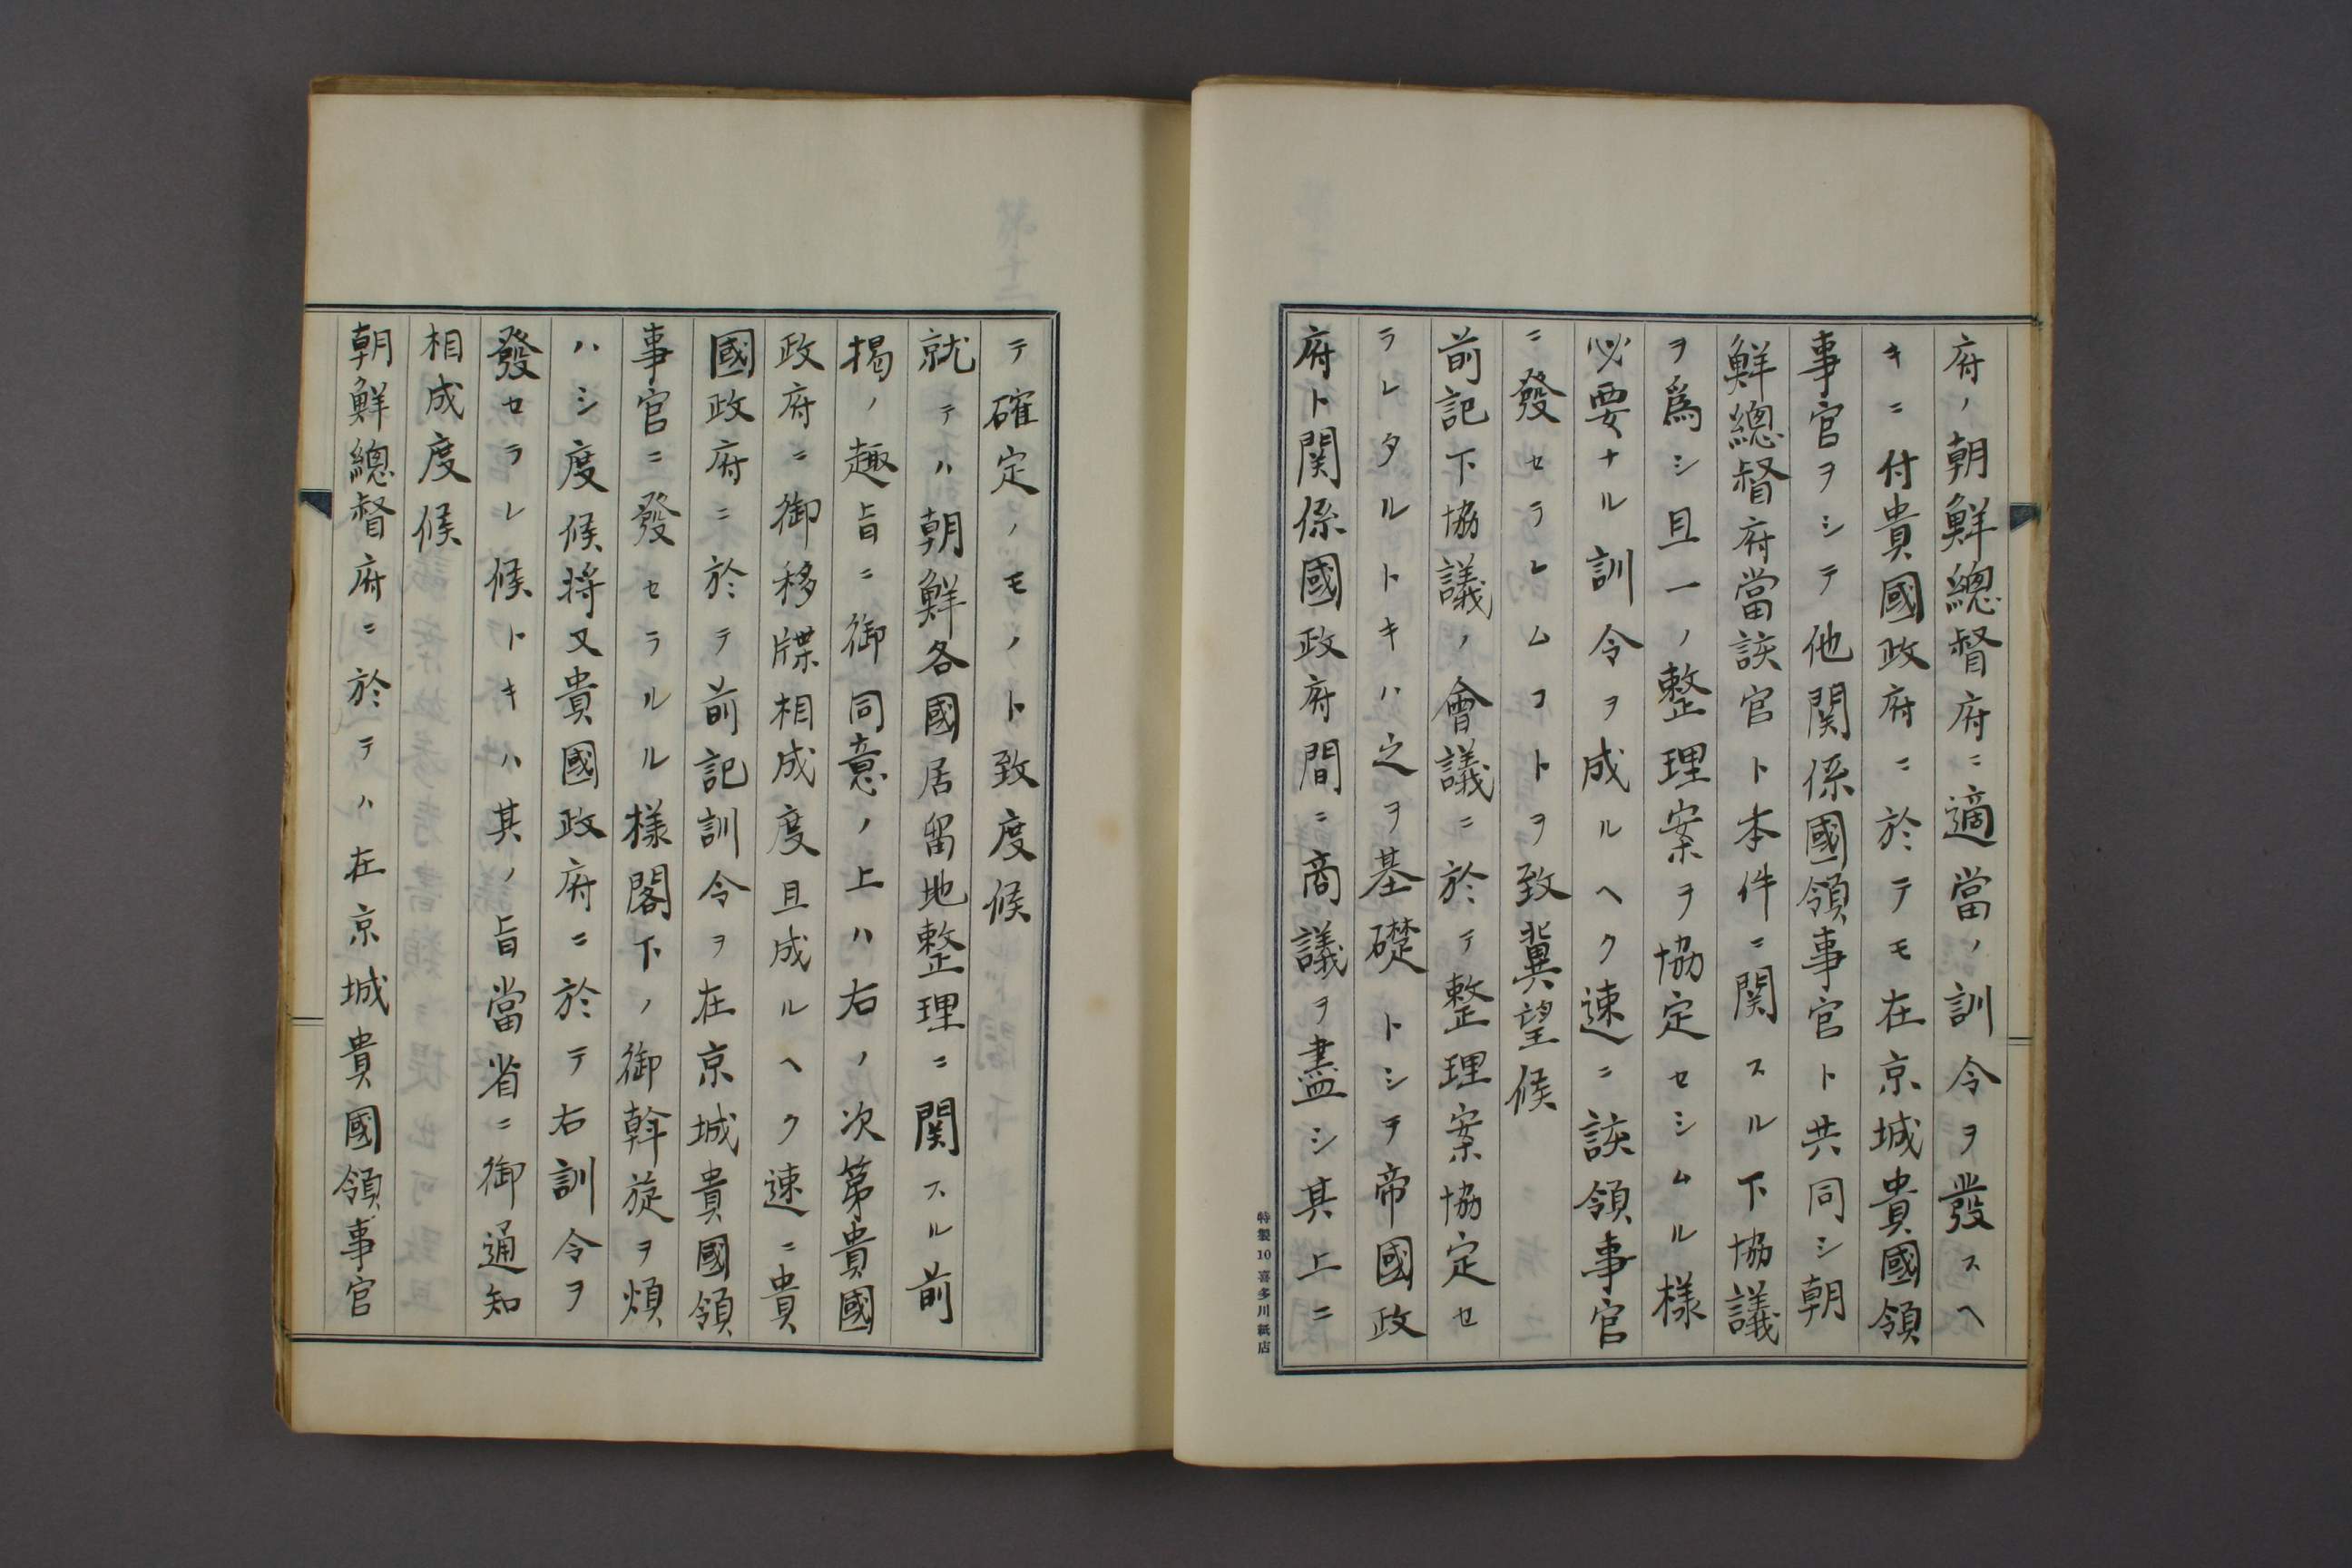 府ノ朝鮮總督府ニ適當ノ訓令ヲ發スヘ
キニ付貴國政府ニ於テモ在京城貴國領
事官ヲシテ他関係國領事官ト共同シ朝
鮮總督府當該官ト本件ニ関スル下協議
ヲ爲シ且一ノ整理案ヲ協定セシムル様
必要ナル訓令ヲ成ルヘク速ニ該領事官
ニ發セラレムコトヲ致冀望候
前記下協議ノ會議ニ於テ整理案協定セ
ラレタルトキハ之ヲ基礎トシテ帝國政
府ト関係國政府間ニ商議ヲ盡シ其上ニ
特製10喜多川紙店
テ確定ノモノト致度候
就テハ朝鮮各國居留地整理ニ関スル前
掲ノ趣旨ニ御同意ノ上ハ右ノ次第貴國
政府ニ御移牒相成度且成ルヘク速ニ貴
國政府ニ於テ前記訓令ヲ在京城貴國領
事官ニ發セラルル様閣下ノ御斡旋ヲ煩
ハシ度候将又貴國政府ニ於テ右訓令ヲ
發セラレ候トキハ其ノ旨當省ニ御通知
相成度候
朝鮮總督府ニ於テハ在京城貴國領事官